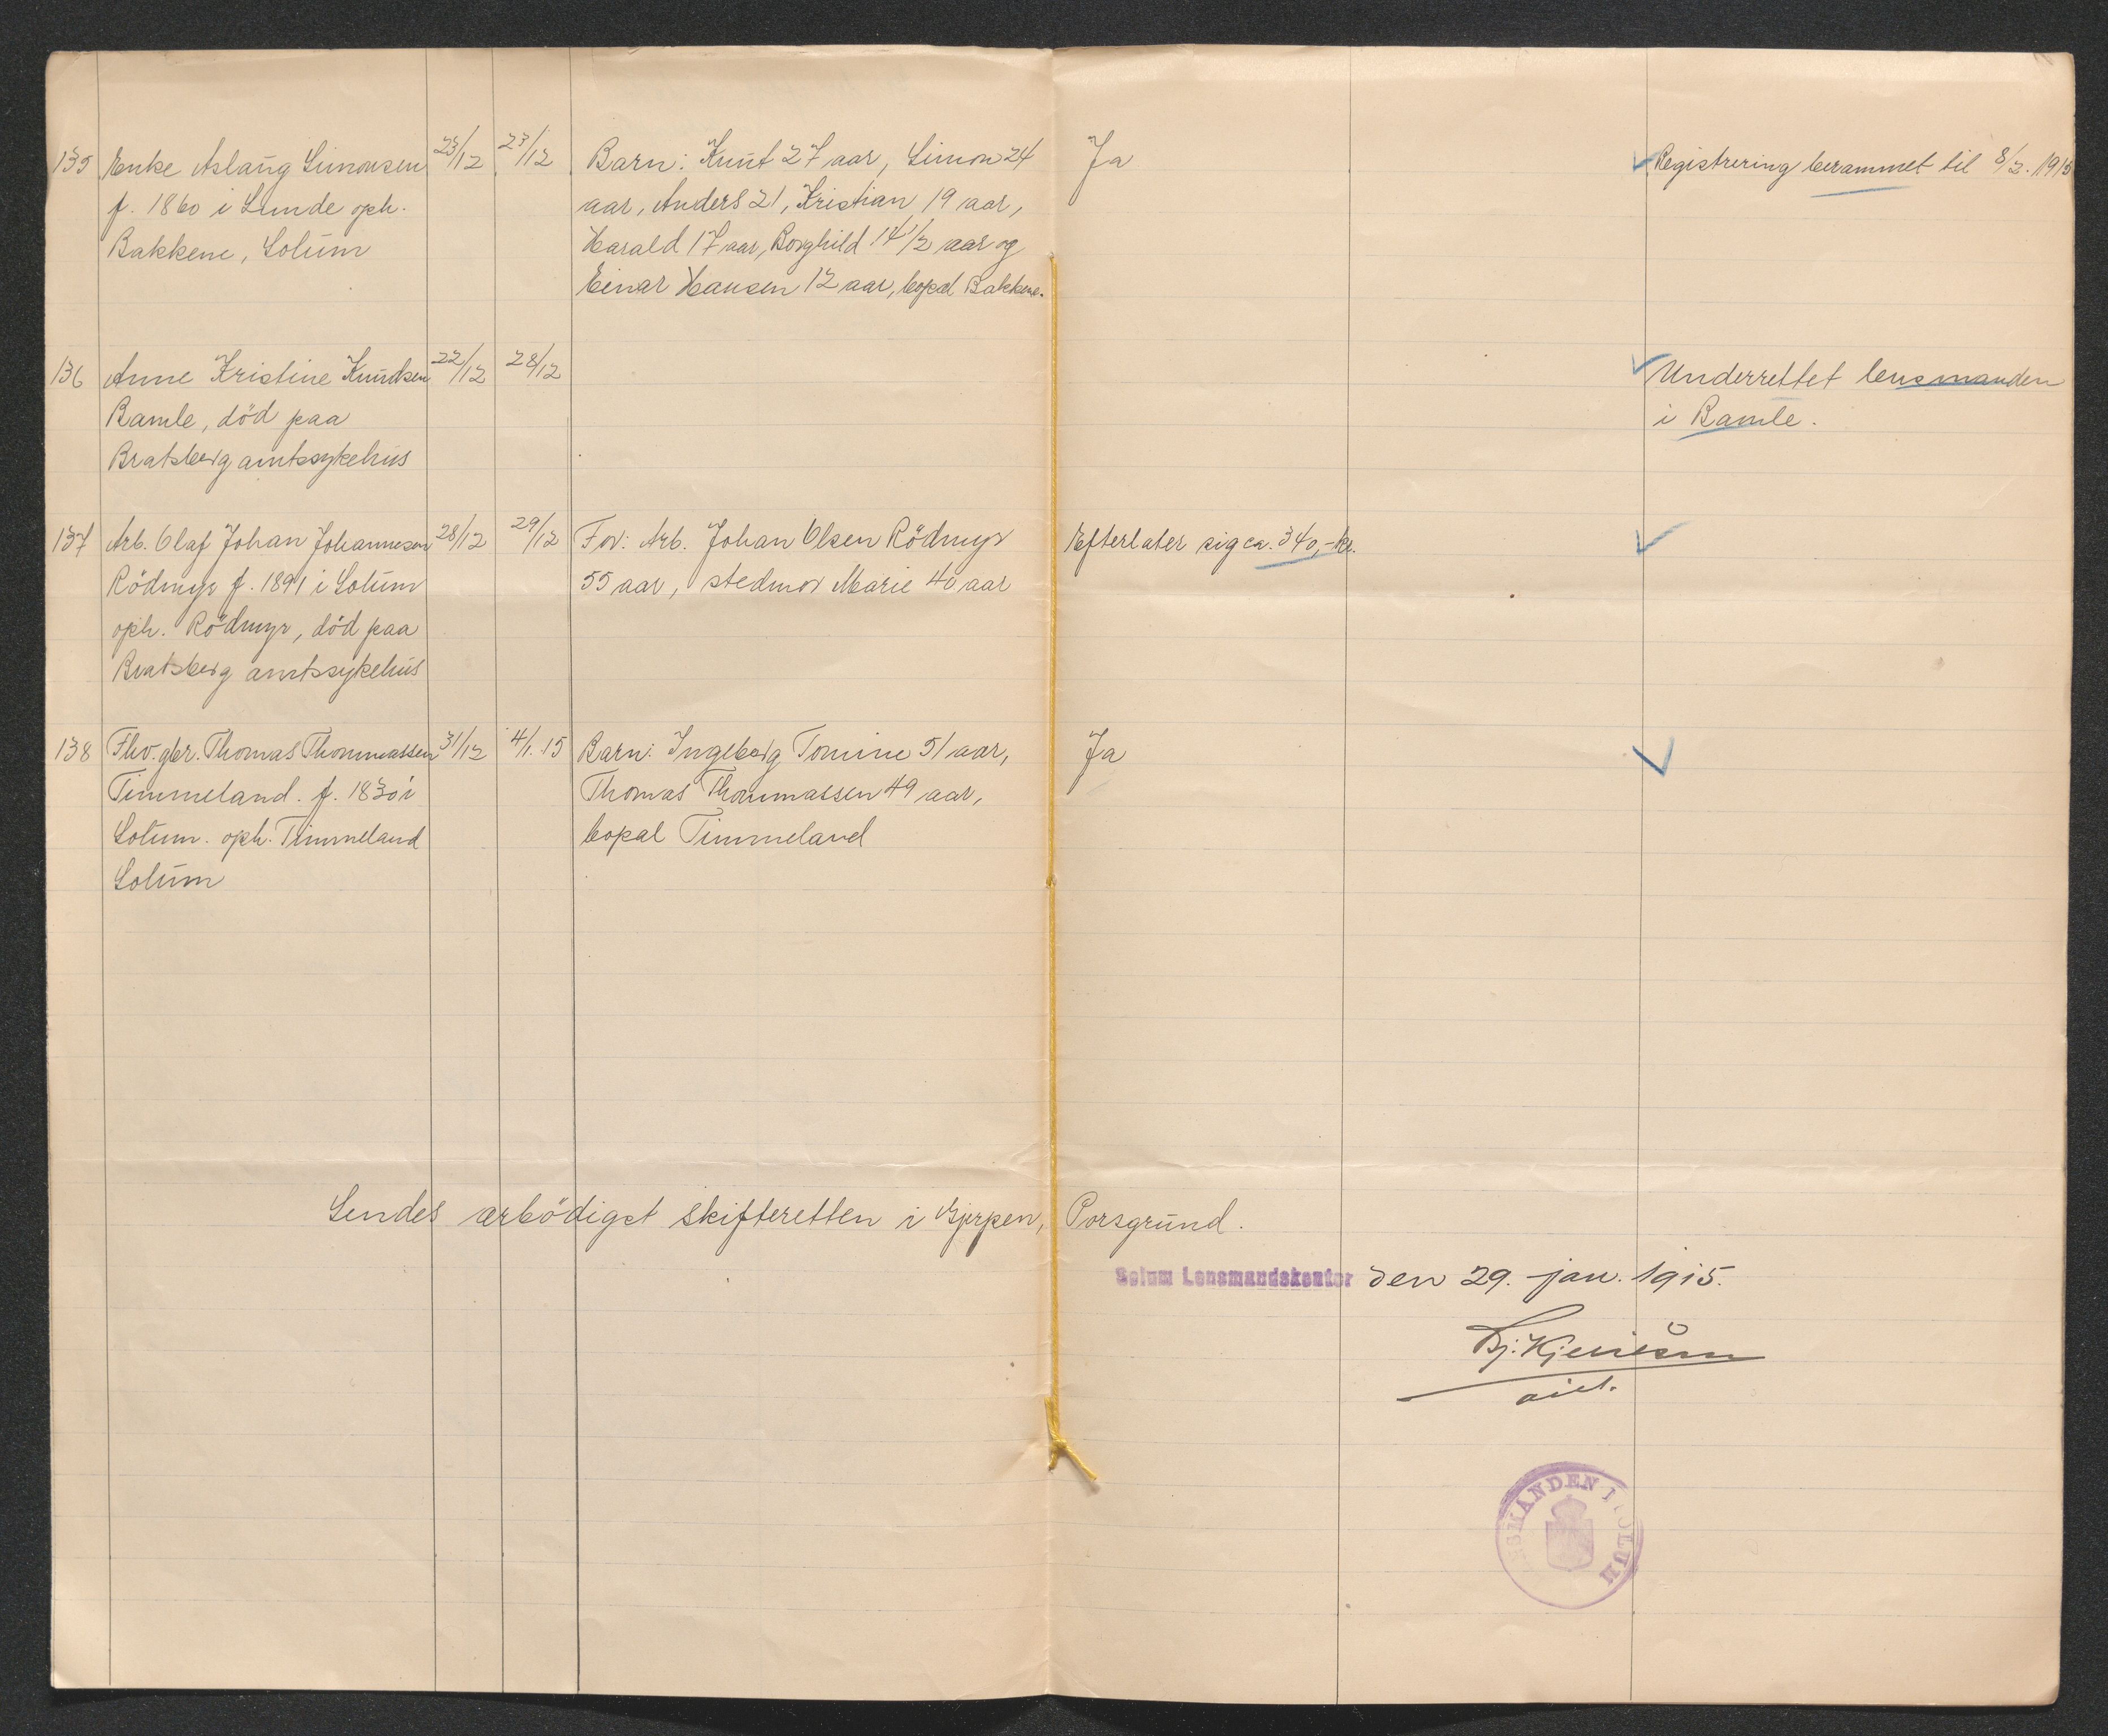 135 Enke Aslaug Simonsen 23/12 23/12 Barn: Knut 27 aar, Simon 24 Ja Registrering berammet til 8/2. 1915
f. 1860 i Lunde oph. aar, Anders 21, Kristian 19 aar,
Bakkene, Solum Harald 17 aar, Borghild 14 1/2 aar og
Einar Hansen 12 aar, bopæl Bakkene.
136 Anne Kristine Knudsen 22/12 28/12 Underrettet lensmanden
Bamle, död paa i Bamle.
Bratsberg amtssykehus
137 Arb. Olaf Johan Johannesen 28/12 29/12 Far: Arb. Johan Olsen Rödmyr Efterlater sig ca. 340,- kr.
Rödmyr f. 1891 i Solum 55 aar, stedmor Marie 40 aar
oph. Rödmyr, död paa
Bratsberg amtssykehus
138 Fhv. gbr. Thomas Thommassen 31/12 4/1.15 Barn: Ingeborg Tomine 51 aar, Ja
Timmeland. f. 1830 i Thomas Thommassen 49 aar,
Solum. oph. Timmeland bopæl Timmeland
Solum
Sendes ærbödigst skifteretten i Gjerpen, Porsgrund.
Solum Lensmandskontor den 29. jan. 1915.
LENSMANDEN I SOLUM